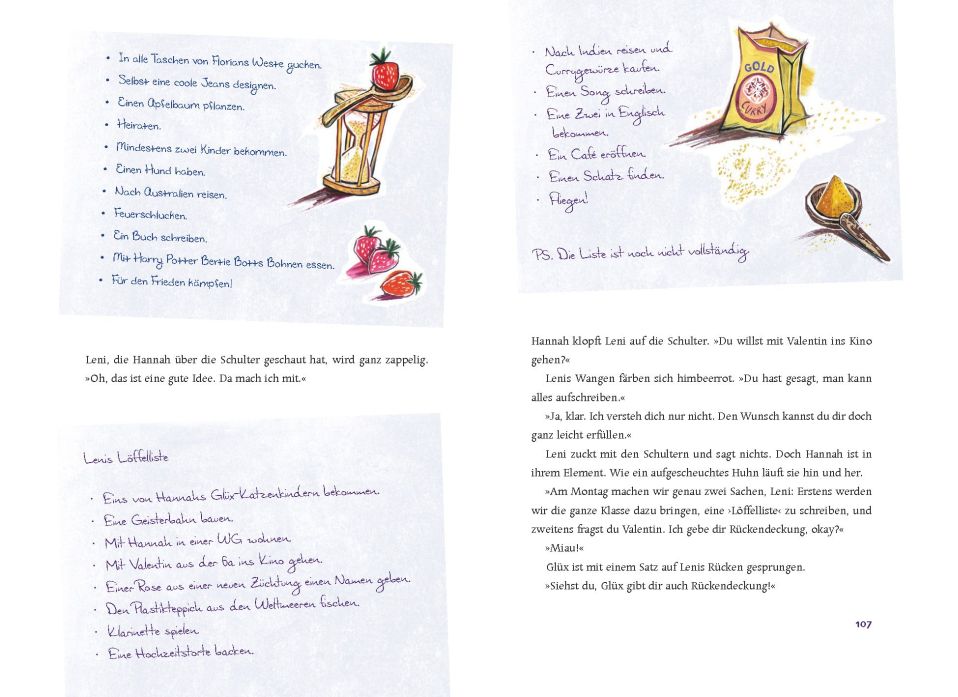 • In alle Taschen von Florians Weste gucken.
• Selbst eine coole Jeans designen.
• Einen Apfelbaum pflanzen.
• Heiraten.
• Mindestens zwei Kinder bekommen.
• Einen Hund haben.
• Nach Australien reisen.
• Feuerschlucken.
• Ein Buch schreiben.
• Mit Harry Potter Bertie Botts Bohnen essen.
• Für den Frieden kämpfen!
Leni, die Hannah über die Schulter geschaut hat, wird ganz zappelig.
»Oh, das ist eine gute Idee. Da mach ich mit.«
Lenis Löffelliste
• Eins von Hannahs Glüx-Katzenkindern bekommen.
• Eine Geisterbahn bauen.
• Mit Hannah in einer WG wohnen.
• Mit Valentin aus der 6a ins Kino gehen.
• Einer Rose aus einer neuen Züchtung einen Namen geben.
• Den Plastikteppich aus den Weltmeeren fischen.
• Klarinette spielen.
• Eine Hochzeitstorte backen.
• Nach Indien reisen und
Currygewürze kaufen.
• Einen Song schreiben.
• Eine Zwei in Englisch
bekommen.
• Ein Café eröffnen.
• Einen Schatz finden.
• Fliegen!
GOLD
CURRY
PS. Die Liste ist noch nicht vollständig.
Hannah klopft Leni auf die Schulter. »Du willst mit Valentin ins Kino
gehen?«
Lenis Wangen färben sich himbeerrot. »Du hast gesagt, man kann
alles aufschreiben.«
»Ja, klar. Ich versteh dich nur nicht. Den Wunsch kannst du dir doch
ganz leicht erfüllen.«
Leni zuckt mit den Schultern und sagt nichts. Doch Hannah ist in
ihrem Element. Wie ein aufgescheuchtes Huhn läuft sie hin und her.
»Am Montag machen wir genau zwei Sachen, Leni: Erstens werden
wir die ganze Klasse dazu bringen, eine ›Löffelliste‹ zu schreiben, und
zweitens fragst du Valentin. Ich gebe dir Rückendeckung, okay?«
»Miau!«
Glüx ist mit einem Satz auf Lenis Rücken gesprungen.
»Siehst du, Glüx gibt dir auch Rückendeckung!«
107